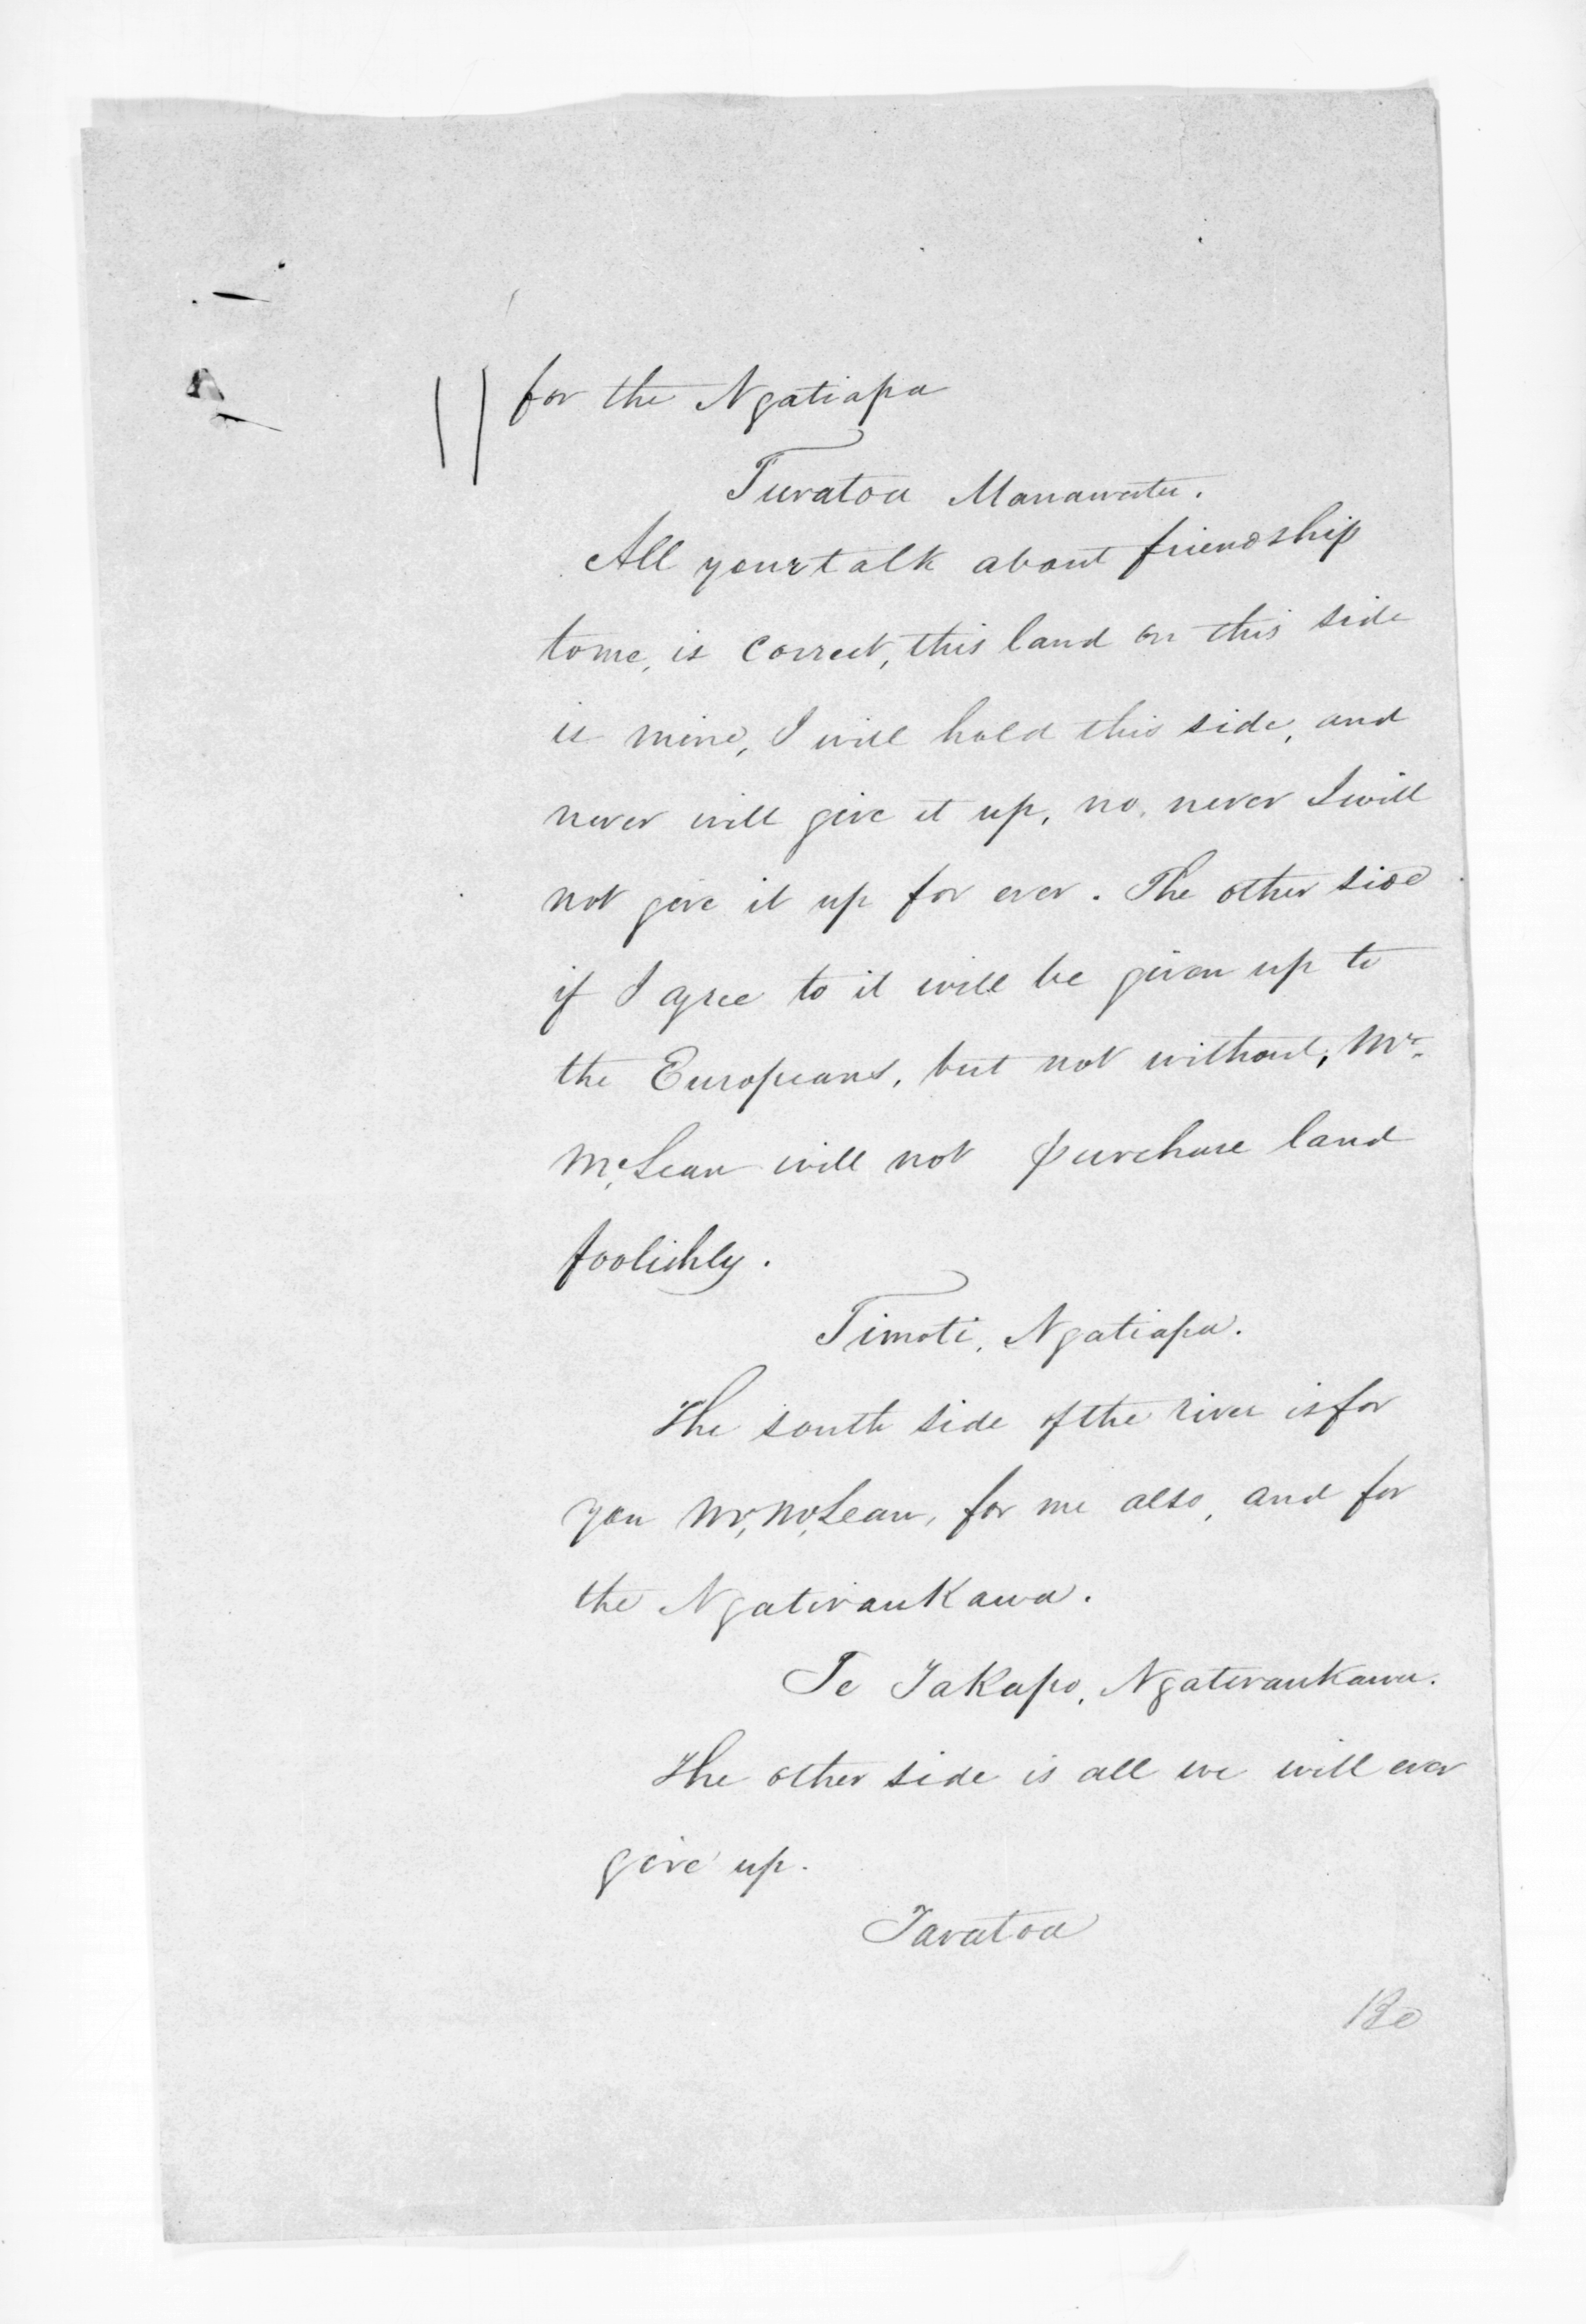 for the Ngatiapa
Turatoa Manawatu.
All your talk about friendship
to me, is correct, this land on this side
is mine, I will hold this side, and
never will give it up, no, never I will
not give it up for ever. The other side
if I agree to it will be given up to
the Europeans, but not without, Mr.
McLean will not purchase land
foolishly.
Timoti, Ngatiapa.
The south side of the river is for
you Mr, McLean, for me also, and for
the Ngatiraukawa.
Te Takapo, Ngatiraukawa.
The other side is all we will ever
give up.
Taratoa